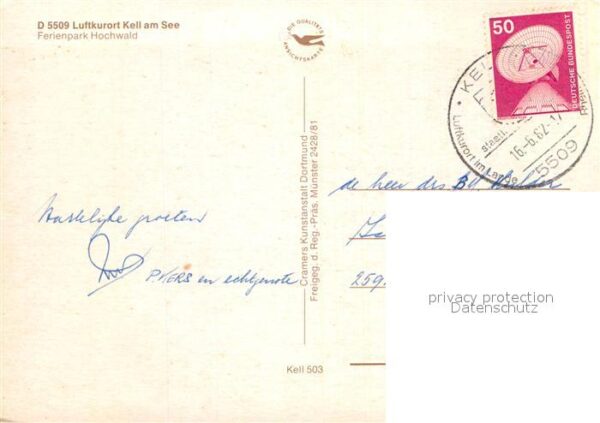 D 5509 Luftkurort Kell am See
Ferienpark Hochwald
DIE QUALITÄTS
ANSICHTSKARTE
50
DEUTSCHE BUNDESPOST
KELL
Luftkurort im Lande
staatl.
16.-6.82.-17
5509
Cramers Kunstanstalt Dortmund
Freigeg. d. Reg.-Präs. Münster 2428/81
de heer drs
259
Hartelijke groeten
en echtgenote
privacy protection
Datenschutz
Kell 503